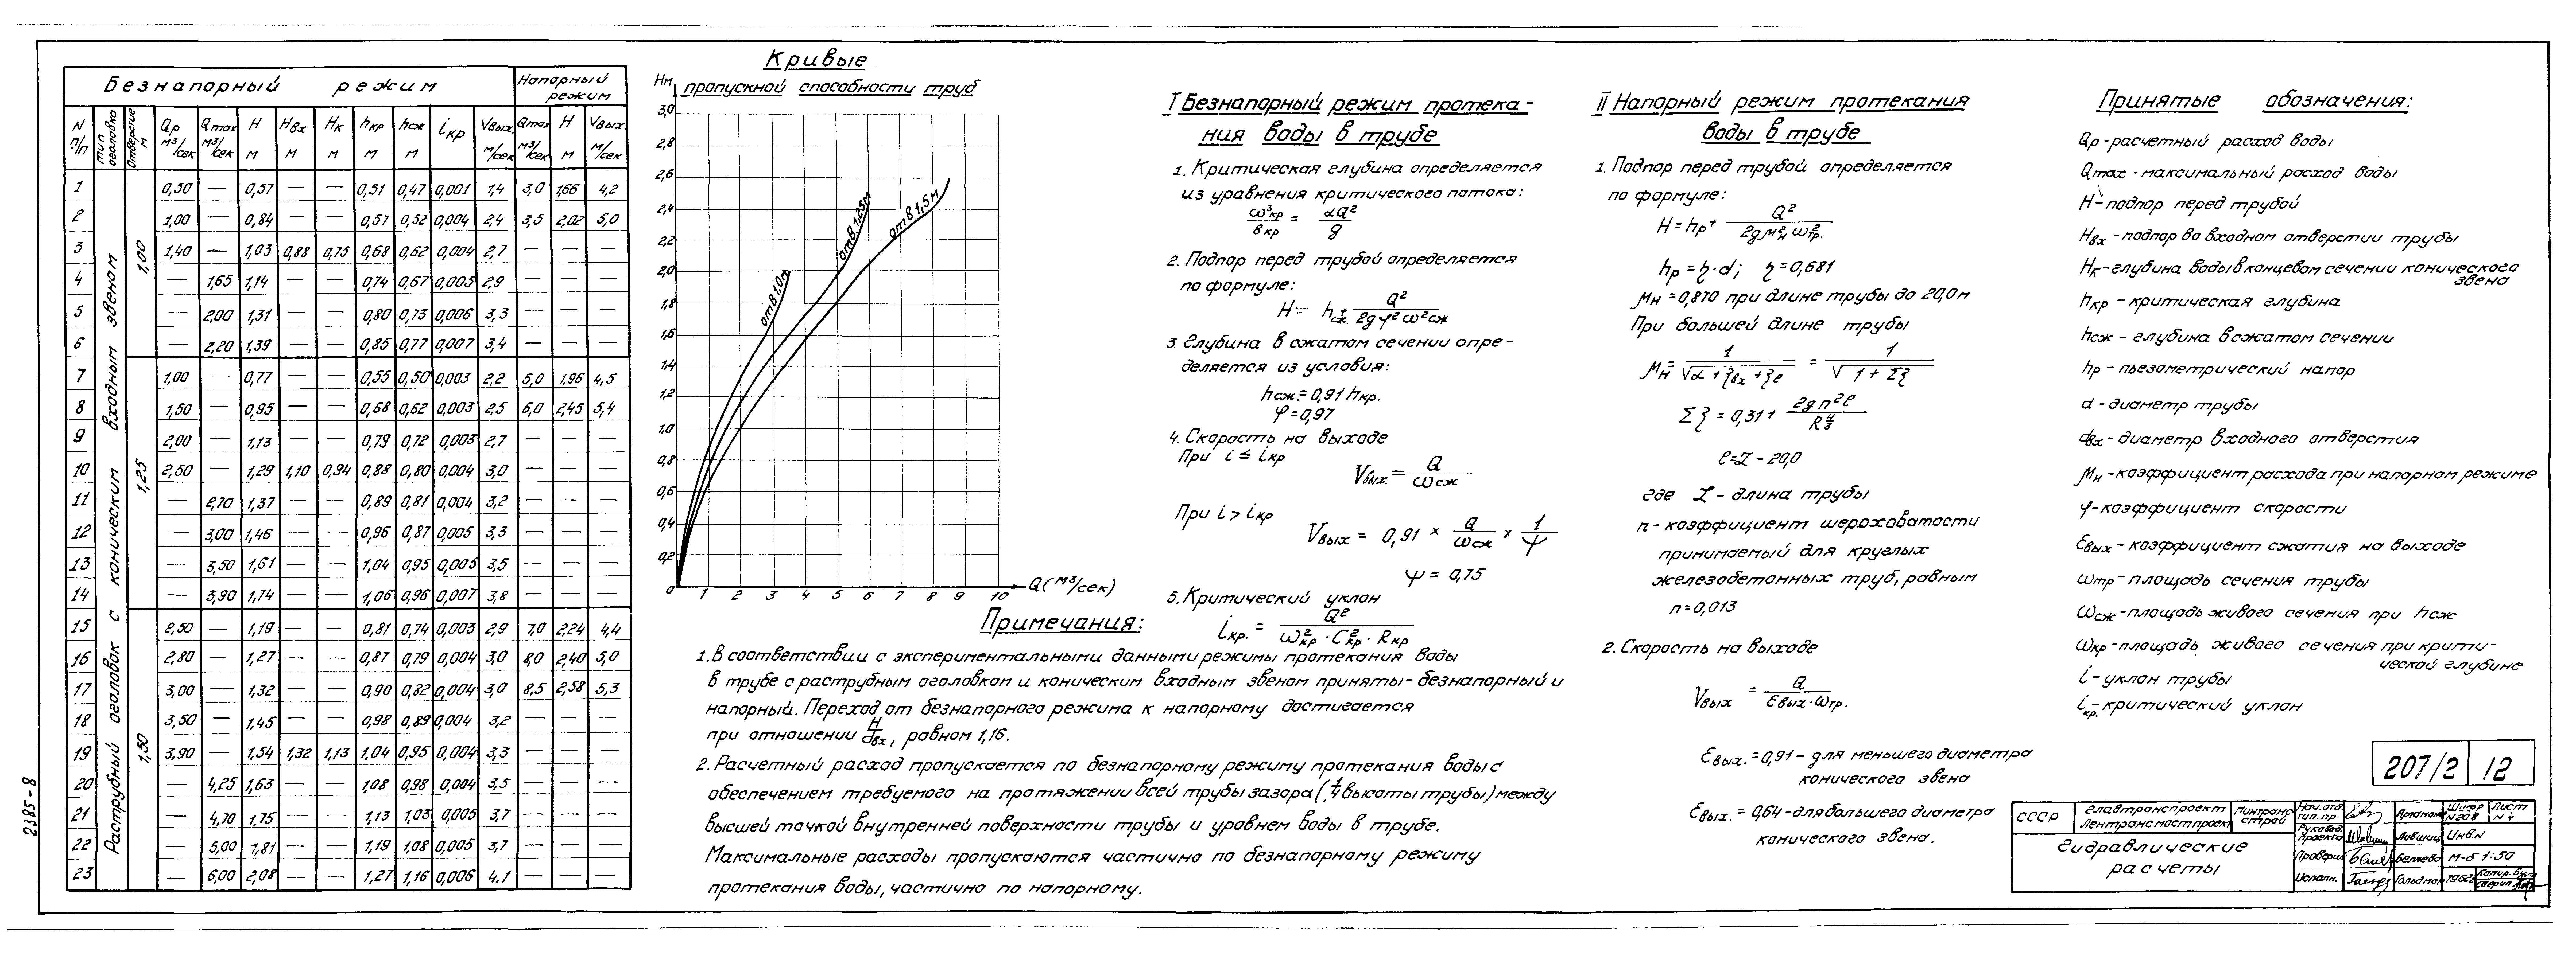 Безнапорный режим | Напорный режим
N п/п | Тип оголовка | Отверстие м | Qр м³/сек | Qmax м³/сек | H м | Hвх м | Hк м | hкр м | hсж м | iкр | Vвых. м/сек | Qmax м³/сек | H м | Vвых. м/сек
Раструбный оголовок с коническим входным звеном
1,00
1 | 0,50 | — | 0,57 | — | — | 0,51 | 0,47 | 0,001 | 1,4 | 3,0 | 1,66 | 4,2
2 | 1,00 | — | 0,84 | — | — | 0,57 | 0,52 | 0,004 | 2,4 | 3,5 | 2,02 | 5,0
3 | 1,40 | — | 1,03 | 0,88 | 0,75 | 0,68 | 0,62 | 0,004 | 2,7 | — | — | —
4 | — | 1,65 | 1,14 | — | — | 0,74 | 0,67 | 0,005 | 2,9 | — | — | —
5 | — | 2,00 | 1,31 | — | — | 0,80 | 0,73 | 0,006 | 3,3 | — | — | —
6 | — | 2,20 | 1,39 | — | — | 0,85 | 0,77 | 0,007 | 3,4 | — | — | —
1,25
7 | 1,00 | — | 0,77 | — | — | 0,55 | 0,50 | 0,003 | 2,2 | 5,0 | 1,96 | 4,5
8 | 1,50 | — | 0,95 | — | — | 0,68 | 0,62 | 0,003 | 2,5 | 6,0 | 2,45 | 5,4
9 | 2,00 | — | 1,13 | — | — | 0,79 | 0,72 | 0,003 | 2,7 | — | — | —
10 | 2,50 | — | 1,29 | 1,10 | 0,94 | 0,88 | 0,80 | 0,004 | 3,0 | — | — | —
11 | — | 2,70 | 1,37 | — | — | 0,89 | 0,81 | 0,004 | 3,2 | — | — | —
12 | — | 3,00 | 1,46 | — | — | 0,96 | 0,87 | 0,005 | 3,3 | — | — | —
13 | — | 3,50 | 1,61 | — | — | 1,04 | 0,95 | 0,005 | 3,5 | — | — | —
14 | — | 3,90 | 1,74 | — | — | 1,06 | 0,96 | 0,007 | 3,8 | — | — | —
1,50
15 | 2,50 | — | 1,19 | — | — | 0,81 | 0,74 | 0,003 | 2,9 | 7,0 | 2,24 | 4,4
16 | 2,80 | — | 1,27 | — | — | 0,87 | 0,79 | 0,004 | 3,0 | 8,0 | 2,40 | 5,0
17 | 3,00 | — | 1,32 | — | — | 0,90 | 0,82 | 0,004 | 3,0 | 8,5 | 2,58 | 5,3
18 | 3,50 | — | 1,45 | — | — | 0,98 | 0,89 | 0,004 | 3,2 | — | — | —
19 | 3,90 | — | 1,54 | 1,32 | 1,13 | 1,04 | 0,95 | 0,004 | 3,3 | — | — | —
20 | — | 4,25 | 1,63 | — | — | 1,08 | 0,98 | 0,004 | 3,5 | — | — | —
21 | — | 4,70 | 1,75 | — | — | 1,13 | 1,03 | 0,005 | 3,7 | — | — | —
22 | — | 5,00 | 1,81 | — | — | 1,19 | 1,08 | 0,005 | 3,7 | — | — | —
23 | — | 6,00 | 2,08 | — | — | 1,27 | 1,16 | 0,006 | 4,1 | — | — | —
2385-8
Кривые
пропускной способности труб
Hм
3,0
2,8
2,6
2,4
2,2
2,0
1,8
1,6
1,4
1,2
1,0
0,8
0,6
0,4
0,2
0 1 2 3 4 5 6 7 8 9 10 Q(м³/сек)
отв 1,0м
отв 1,25м
отв 1,5м
Примечания:
1. В соответствии с экспериментальными данными режимы протекания воды
в трубе с раструбным оголовком и коническим входным звеном приняты - безнапорный и
напорный. Переход от безнапорного режима к напорному достигается
при отношении H/dвх, равном 1,16.
2. Расчетный расход пропускается по безнапорному режиму протекания воды с
обеспечением требуемого на протяжении всей трубы зазора (1/4 высоты трубы) между
высшей точкой внутренней поверхности трубы и уровнем воды в трубе.
Максимальные расходы пропускаются частично по безнапорному режиму
протекания воды, частично по напорному.
I Безнапорный режим протека-
ния воды в трубе
1. Критическая глубина определяется
из уравнения критического потока:
ω³кр / вкр = αQ² / g
2. Подпор перед трубой определяется
по формуле:
H = hсж + Q² / 2gφ²ω²сж
3. Глубина в сжатом сечении опре-
деляется из условия:
hсж. = 0,91 hкр.
φ = 0,97
4. Скорость на выходе
При i ≤ iкр
Vвых. = Q / ωсж
При i > iкр
Vвых = 0,91 × Q / ωсж × 1 / ψ
ψ = 0,75
5. Критический уклон
iкр. = Q² / ω²кр · C²кр · Rкр
II Напорный режим протекания
воды в трубе
1. Подпор перед трубой определяется
по формуле:
H = hр + Q² / 2gμ²н ω²тр.
hр = η·d; η = 0,681
μн = 0,870 при длине трубы до 20,0м
При большей длине трубы
μн = 1 / √α + ξвх + ξℓ = 1 / √1 + Σξ
Σξ = 0,31 + 2gn²ℓ / R^4/3
ℓ = L - 20,0
где L - длина трубы
n - коэффициент шероховатости
принимаемый для круглых
железобетонных труб, равным
n = 0,013
2. Скорость на выходе
Vвых = Q / Εвых·ωтр.
Εвых. = 0,91 - для меньшего диаметра
конического звена
Εвых. = 0,64 - для большего диаметра
конического звена.
Принятые обозначения:
Qр - расчетный расход воды
Qmax - максимальный расход воды
H - подпор перед трубой
Hвх - подпор во входном отверстии трубы
Hк - глубина воды в концевом сечении конического
звена
hкр - критическая глубина
hсж - глубина в сжатом сечении
hр - пьезометрический напор
d - диаметр трубы
dвх - диаметр входного отверстия
μн - коэффициент расхода при напорном режиме
φ - коэффициент скорости
Εвых - коэффициент сжатия на выходе
ωтр - площадь сечения трубы
ωсж - площадь живого сечения при hсж
ωкр - площадь живого сечения при крити-
ческой глубине
i - уклон трубы
iкр. - критический уклон
207/2 | 12
СССР | Главтранспроект Лентрансмостпроект | Минтрансстрой
Гидравлические
расчеты
Нач. отд. тип. пр. | Шифр N 208 | Лист N 4
Руковод. проекта | Лившиц | Инв. N
Проверил | Беляева | М-б 1:50
Исполн. | Гольдман | 1962г | Копир. | Сверил